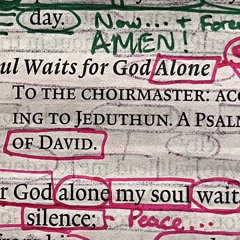 day. Now...+ Forev
AMEN!
ul Waits for God Alone
TO THE CHOIRMASTER: ACC
ING TO JEDUTHUN. A PSALM
OF DAVID.
r God alone my soul wait
silence; - Peace...